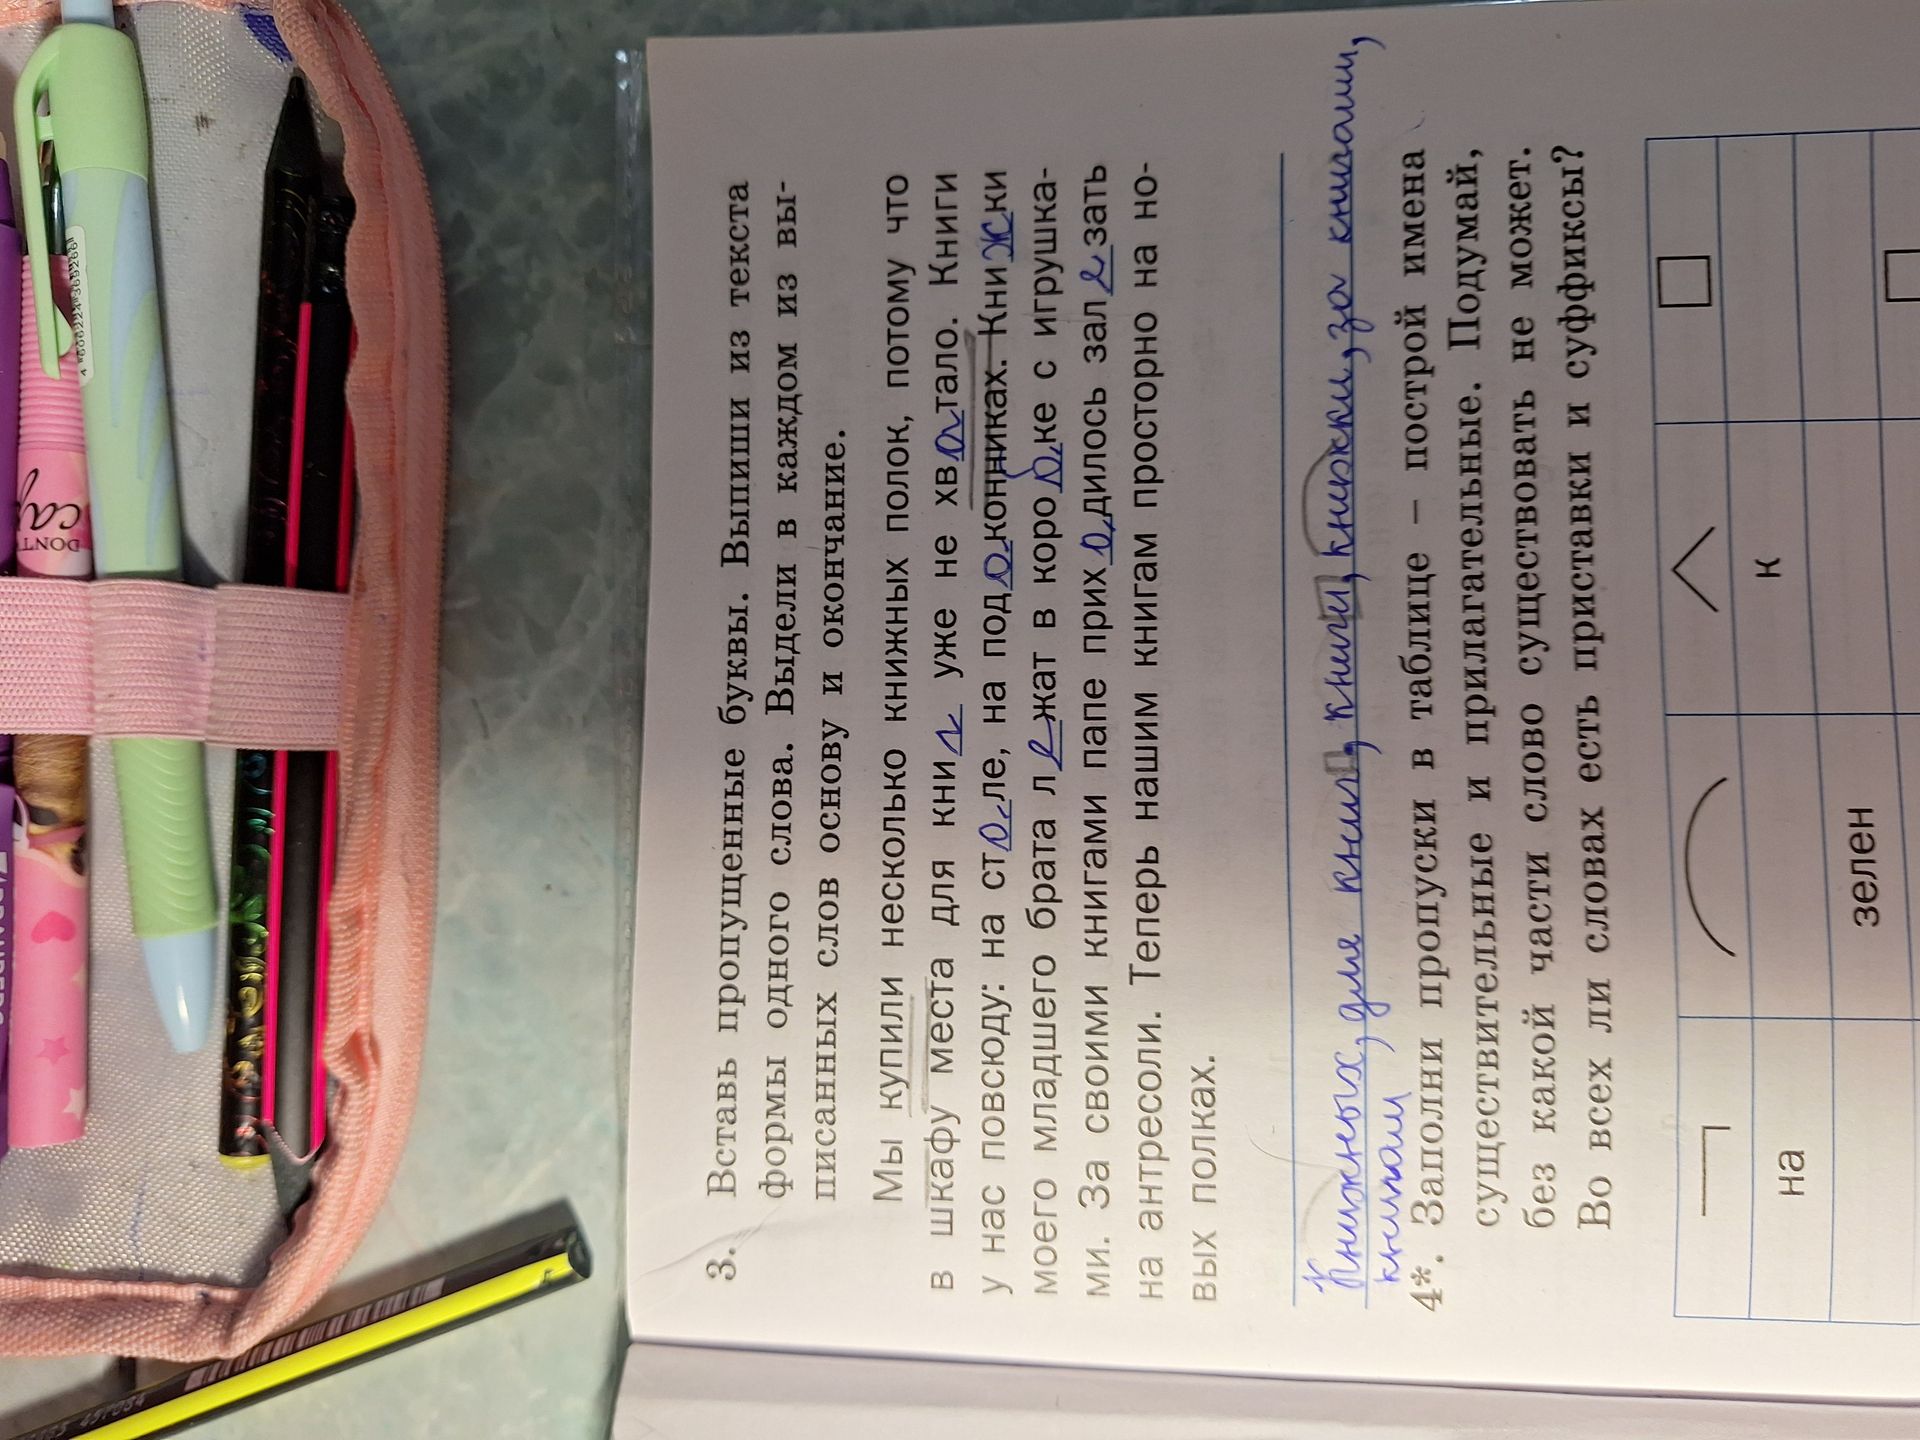 3. Вставь пропущенные буквы. Выпиши из текста
формы одного слова. Выдели в каждом из вы-
писанных слов основу и окончание.
Мы купили несколько книжных полок, потому что
в шкафу места для книг уже не хватало. Книги
у нас повсюду: на столе, на подоконниках. Книжки
моего младшего брата лежат в коробке с игрушка-
ми. За своими книгами папе приходилось залезать
на антресоли. Теперь нашим книгам просторно на но-
вых полках.
Книжных, для книг, книги, книжки, за книгами,
книгам
4*. Заполни пропуски в таблице – построй имена
существительные и прилагательные. Подумай,
без какой части слово существовать не может.
Во всех ли словах есть приставки и суффиксы?
на к
зелен
DON'T
4 606224 369266
457084